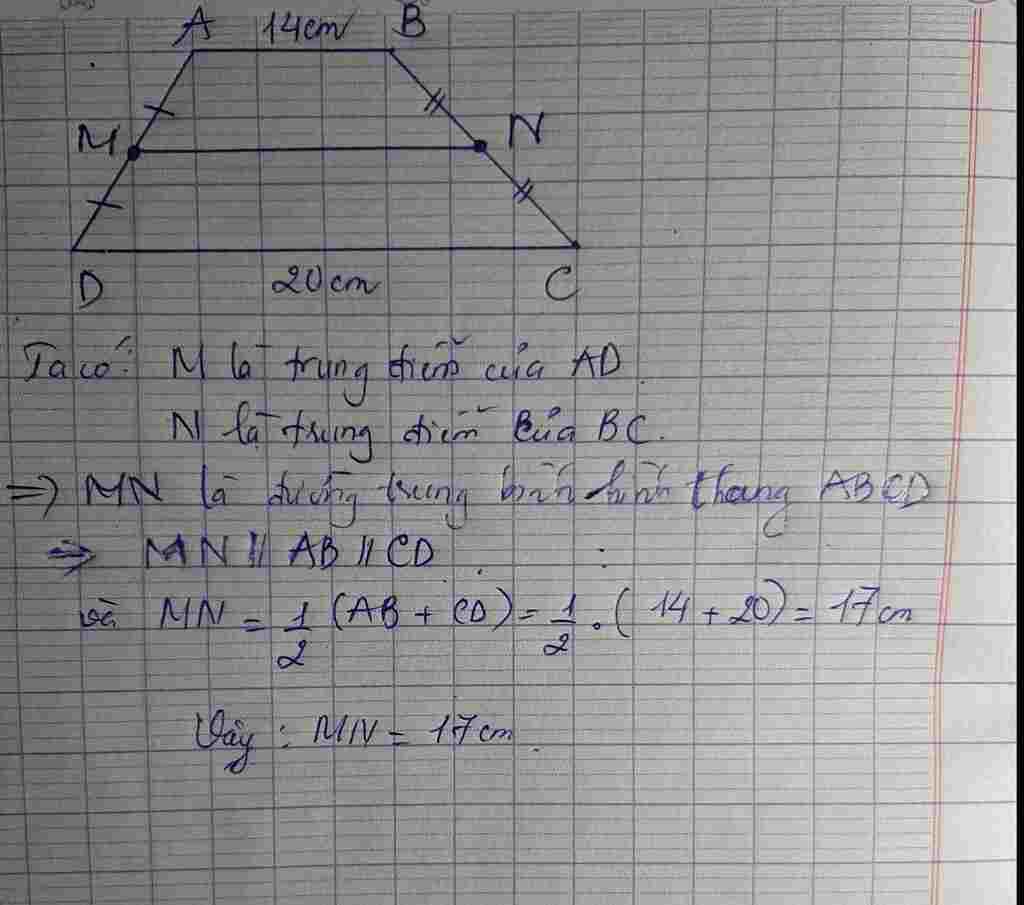 A 14cm B
M N
D 20cm C
Ta có: M là trung điểm của AD.
N là trung điểm của BC.
=> MN là đường trung bình hình thang ABCD
=> MN // AB // CD
và MN = 1/2 (AB + CD) = 1/2 . (14 + 20) = 17cm
Vậy : MN = 17cm.